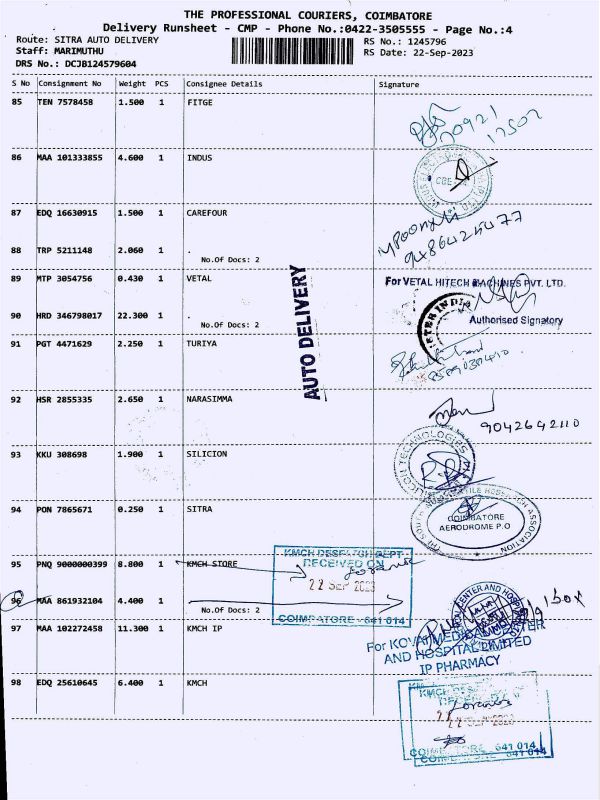 THE PROFESSIONAL COURIERS, COIMBATORE
Delivery Runsheet - CMP - Phone No.:0422-3505555 - Page No.:4
Route: SITRA AUTO DELIVERY
RS No.: 1245796
Staff: MARIMUTHU
RS Date: 22-Sep-2023
DRS No.: DCJB124579604
S No Consignment No Weight PCS Consignee Details Signature
85 TEN 7578458 1.500 1 FITGE
86 MAA 101333855 4.600 1 INDUS
CBE
87 EDQ 16630915 1.500 1 CAREFOUR
88 TRP 5211148 2.060 1 .
No.Of Docs: 2
89 MTP 3054756 0.430 1 VETAL
For VETAL HITECH MACHINES PVT. LTD.
Authorised Signatory
90 HRD 346798017 22.300 1 .
No.Of Docs: 2
AUTO DELIVERY
91 PGT 4471629 2.250 1 TURIYA
92 HSR 2855335 2.650 1 NARASIMMA
9042642110
93 KKU 308698 1.900 1 SILICION
94 PON 7865671 0.250 1 SITRA
COIMBATORE
AERODROME P.O
95 PNQ 9000000399 8.800 1 KMCH STORE
KMCH DESPATCH DEPT
RECEIVED ON
22 SEP 2023
COIMBATORE - 641 014
96 MAA 861932104 4.400 1 .
No.Of Docs: 2
97 MAA 102272458 11.300 1 KMCH IP
For KOVAI MEDICAL CENTER
AND HOSPITAL LIMITED
IP PHARMACY
98 EDQ 25610645 6.400 1 KMCH
COIMBATORE - 641 014